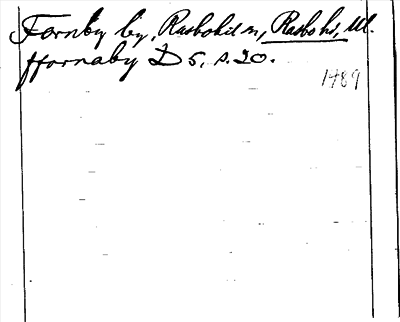 Fornby by, Rasbokil sn, Rasbo hd, Upl.
fforneby D 5, s. 20.
1489